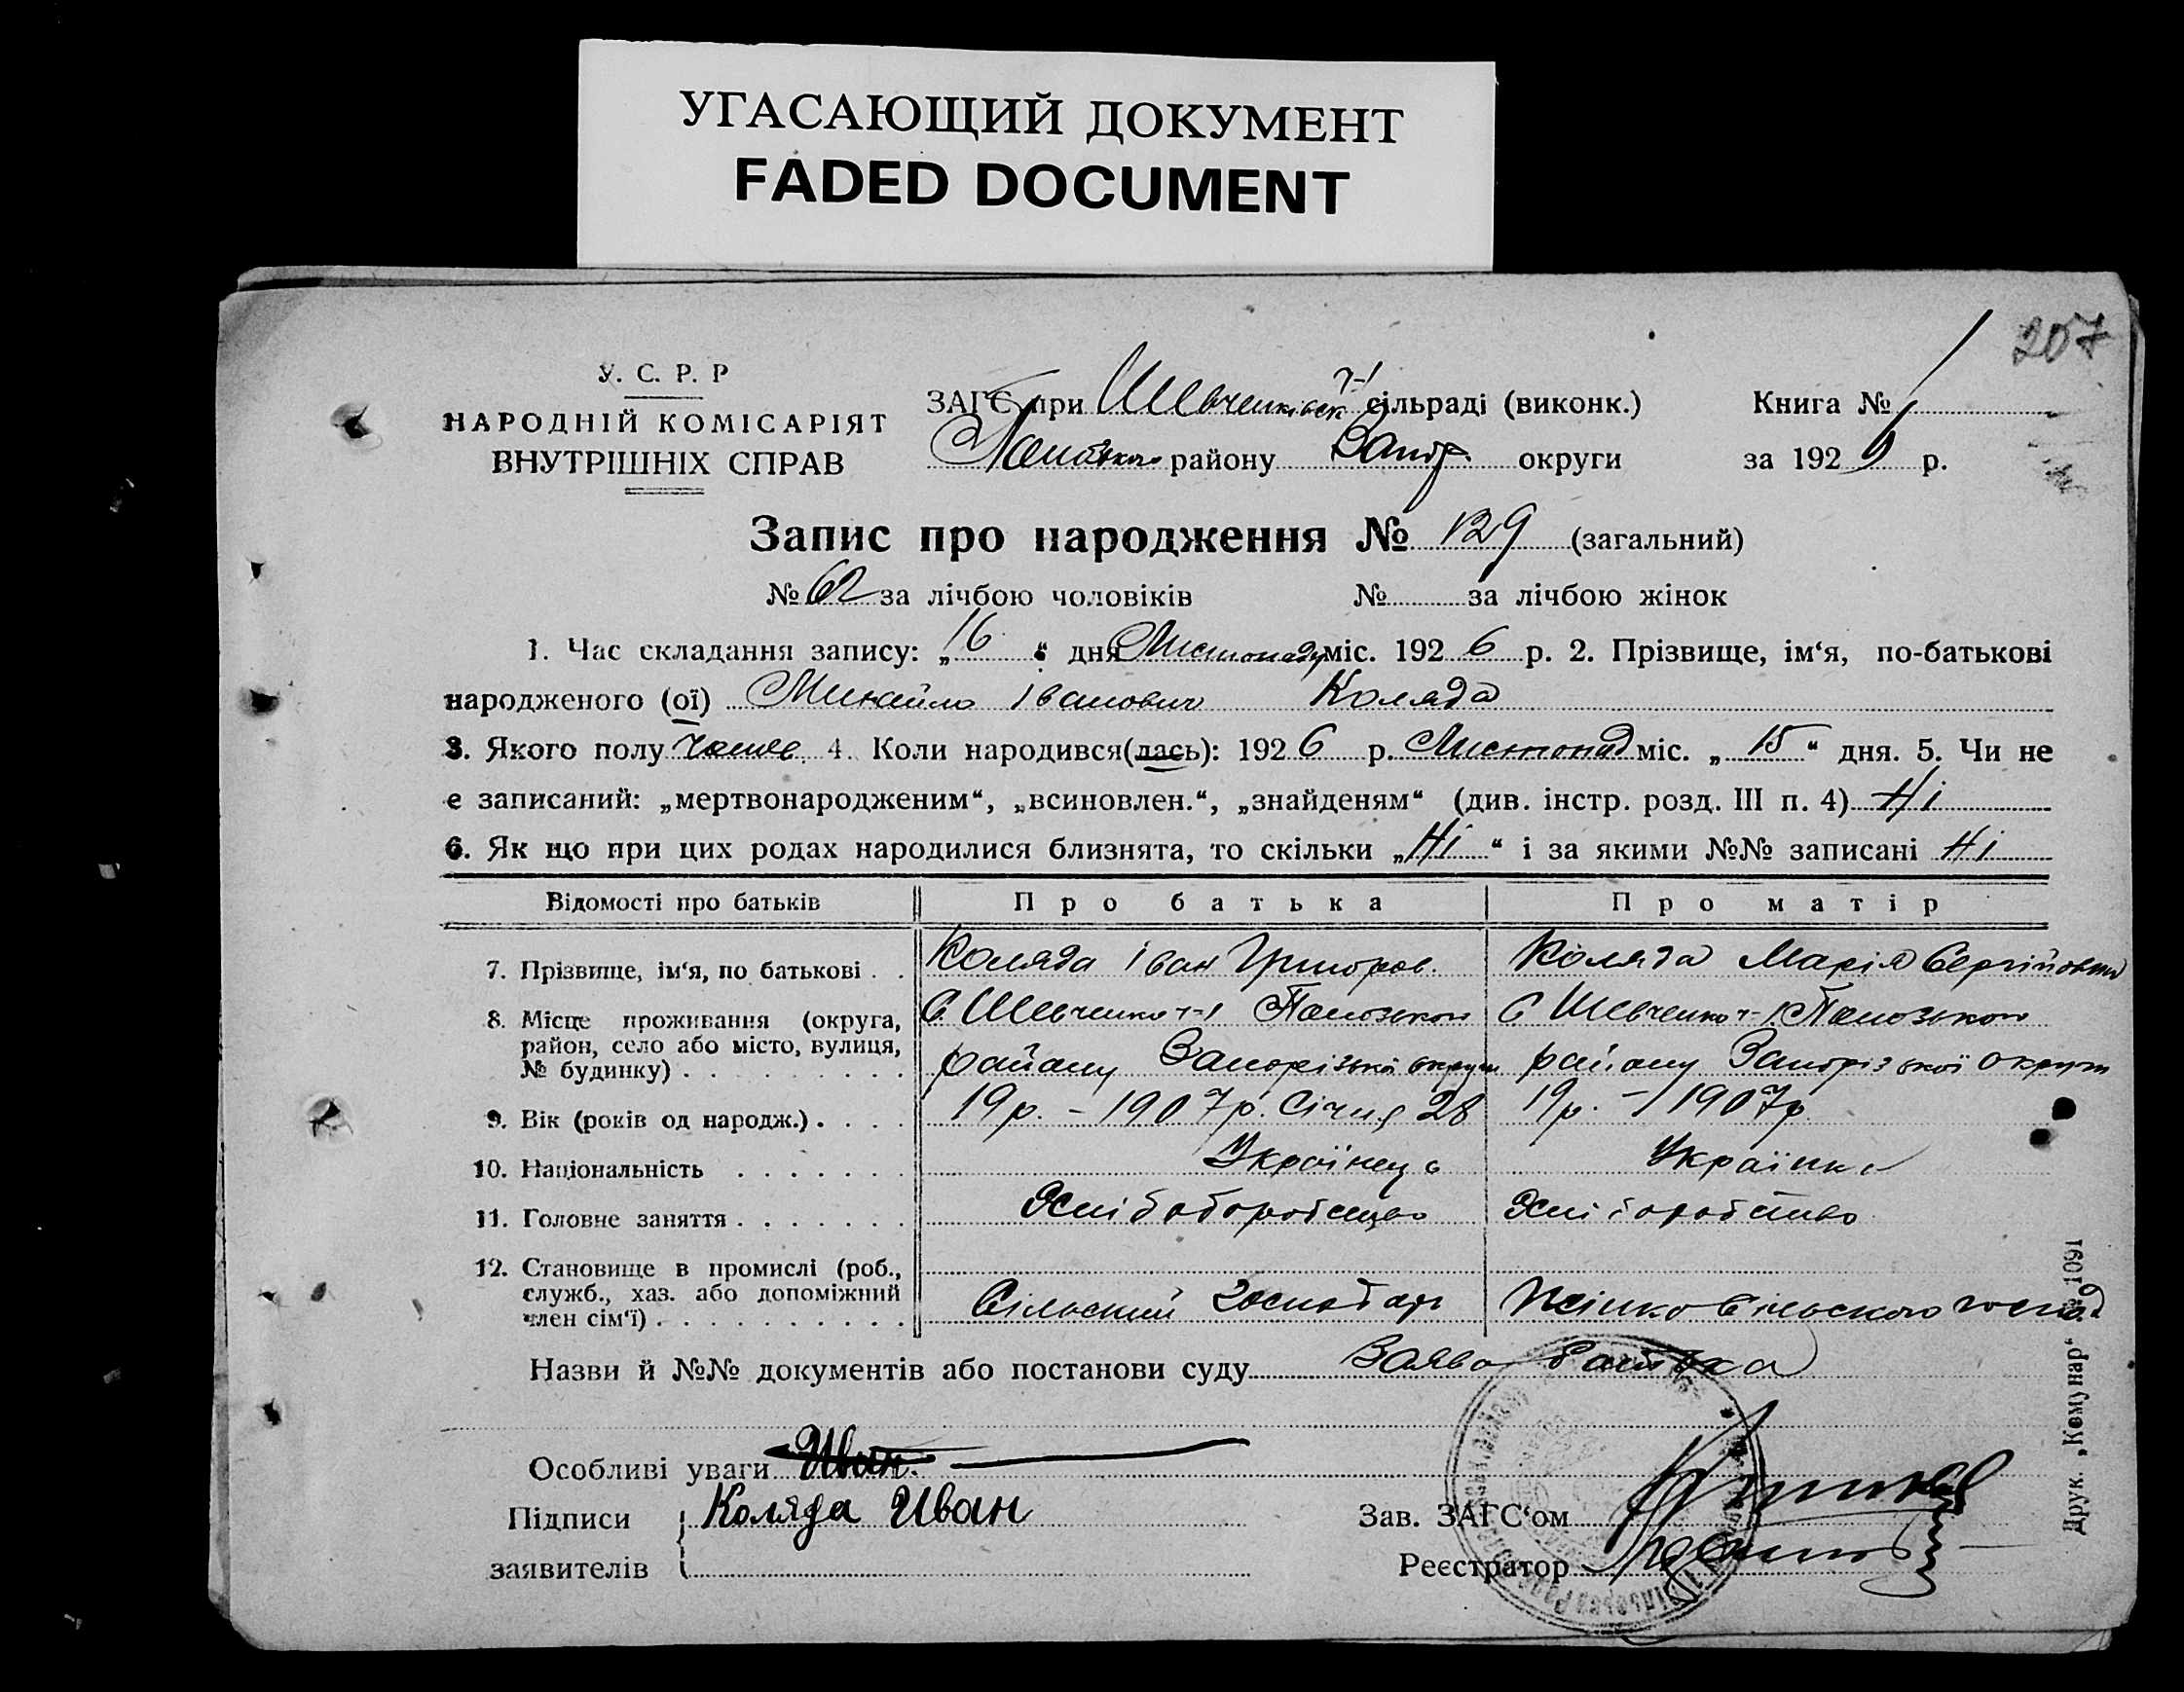 УГАСАЮЩИЙ ДОКУМЕНТ
FADED DOCUMENT
207
У. С. Р. Р
НАРОДНІЙ КОМІСАРІЯТ
ВНУТРІШНІХ СПРАВ
ЗАГС при Шевченківськ сільраді (виконк.)
району Запор. округи
Книга № 1
за 1926 р.
Запис про народження № 129 (загальний)
№ 62 за лічбою чоловіків № за лічбою жінок
1. Час складання запису: „16“ дня Листопаду міс. 1926 р. 2. Прізвище, ім‘я, по-батькові
народженого (ої) Михайло Іванович Коляда
3. Якого полу чолов. 4. Коли народився(лась): 1926 р. Листопад міс. „15“ дня. 5. Чи не
є записаний: „мертвонародженим“, „всиновлен.“, „знайденям“ (див. інстр. розд. III п. 4) Ні
6. Як що при цих родах народилися близнята, то скільки „Ні“ і за якими №№ записані Ні
Відомості про батьків Про батька Про матір
7. Прізвище, ім‘я, по батькові . . Коляда Іван Григоров. Коляда Марія Сергійовна
8. Місце проживання (округа, район, село або місто, вулиця, № будинку) . . . . . . . . .
С. Шевченко 1 С Шевченко 1
району Запорізької округи району Запорізької округи
9. Вік (років од народж.) . . . . 19 р. – 1907 р. Січня 28 19 р. – 1907 р
10. Національність . . . . . . . Українець Українка
11. Головне заняття . . . . . . . Хліборобство Хліборобство
12. Становище в промислі (роб., служб., хаз. або допоміжний член сім‘ї) . . . . . . . . . .
Сільський господар Жінка сільського господ
Назви й №№ документів або постанови суду Заява батька
Особливі уваги Иван.
Підписи заявителів Коляда Иван
Зав. ЗАГС‘ом
Реєстратор
Друк. „Комунар“ № 1091